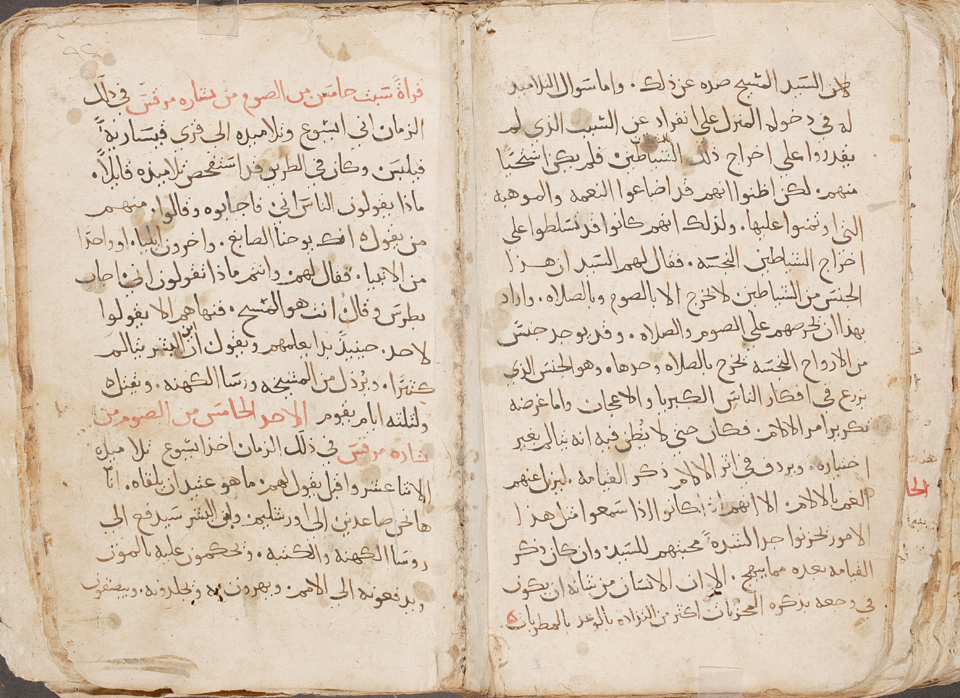 لان السيد المسيح صده عن ذلك. واما سوال التلاميد
له في دخوله المنزل على انفراد عن السبب الذي لم
يقدروا على اخراج ذلك الشياطين فلم يكن اشخيا
منهم. لكن اظنوا انهم قد اضاعوا النعمه والموهبه
التي اوتمنوا عليها. ولذلك انهم كانوا قد تسلطوا على
اخراج الشياطين النجسه. فقال لهم السيد ان هذا
الجنس من الشياطين لا يخرج الا بالصوم وبالصلاه. واراد
بهدا ان يحرصهم على الصوم والصلاه. وقد يوجد جنس
من الارواح النجسه يخرج بالصلاه وحدها. وهو الجنس الذي
يزرع في افكار الناس الكبريا والاعجاب واما غرضه
تكرير امر الالام. فكان حتى لا يُظن فيه انه يتالم بغير
اختياره. ويردف في اثر الالام ذكر القيامه. ليزل عنهم
الغم بالالام. الا انهم اذ كانوا اذا سمعوا مثل هذا
الامور يحزنوا جدا لشدة محبتهم للسيد. وان كان ذكر
القيامه بعده مما يبهج. الا ان الانسان من شانه ان يكون
في وجعه بذكره المحزنات اكثر من التذاده بالوعد بالمطربات
قراة سبت خامس من الصوم من بشاره مرقس في ذلك
الزمان اتى ايسوع وتلاميده الى قرى قيساريه
فيلبس وكان في الطريق قد استفحص تلاميذه قايلاً.
ماذا يقولون الناس اني فاجابوه وقالوا. منهم
من يقول انك يوحنا الصابغ. واخرون ايليا. او واحدا
من الانبيا. فقال لهم. وانتم ماذا تقولون اني. اجاب
بطرس وقال انت هو المسيح. فنهاهم الا يقولوا
لاحد. حينيذ بدا يعلمهم ويقول ان ابن البشر يتالم
كثيرا. ويُرذل من المشيخه وروسا الكهنه. ويقتل
ولثلثه ايام يقوم الاحد الخامس من الصوم من
بشاره مرقس في ذلك الزمان اخذ ايسوع تلاميده
الاثنا عشر واقبل يقول لهم. ما هو عتيد ان يلقاه. انا
ها نحن صاعدين الى اورشليم. وابن البشر سيدفع الى
روسا الكهنه والكتبه. ويحكمون عليه بالموت
ويدفعونه الى الامم. ويهزون به ويجلدونه. ويبصقون